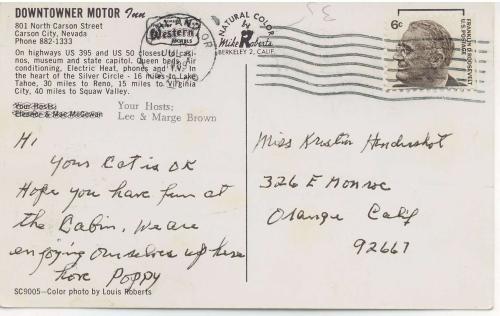 DOWNTOWNER MOTOR Inn
801 North Carson Street
Carson City, Nevada
Phone 882-1333
On highways US 395 and US 50 closest to casi-
nos, museum and state capitol. Queen beds, Air
conditioning, Electric Heat, phones and T.V. In
the heart of the Silver Circle - 16 miles to Lake
Tahoe, 30 miles to Reno, 15 miles to Virginia
City, 40 miles to Squaw Valley.
Your Hosts:
Eleanor & Mac McGowan
Your Hosts:
Lee & Marge Brown
Hi
Your Cat is OK
Hope you have fun at
the Cabin. We are
enjoying ourselves up here
love Poppy
SC9005—Color photo by Louis Roberts
Western
MOTELS
NATURAL COLOR
BY
Mike Roberts
BERKELEY 2, CALIF.
6c
FRANKLIN D. ROOSEVELT
U.S. POSTAGE
Miss Kristin Hendershot
326 E Monroe
Orange Calif
92667